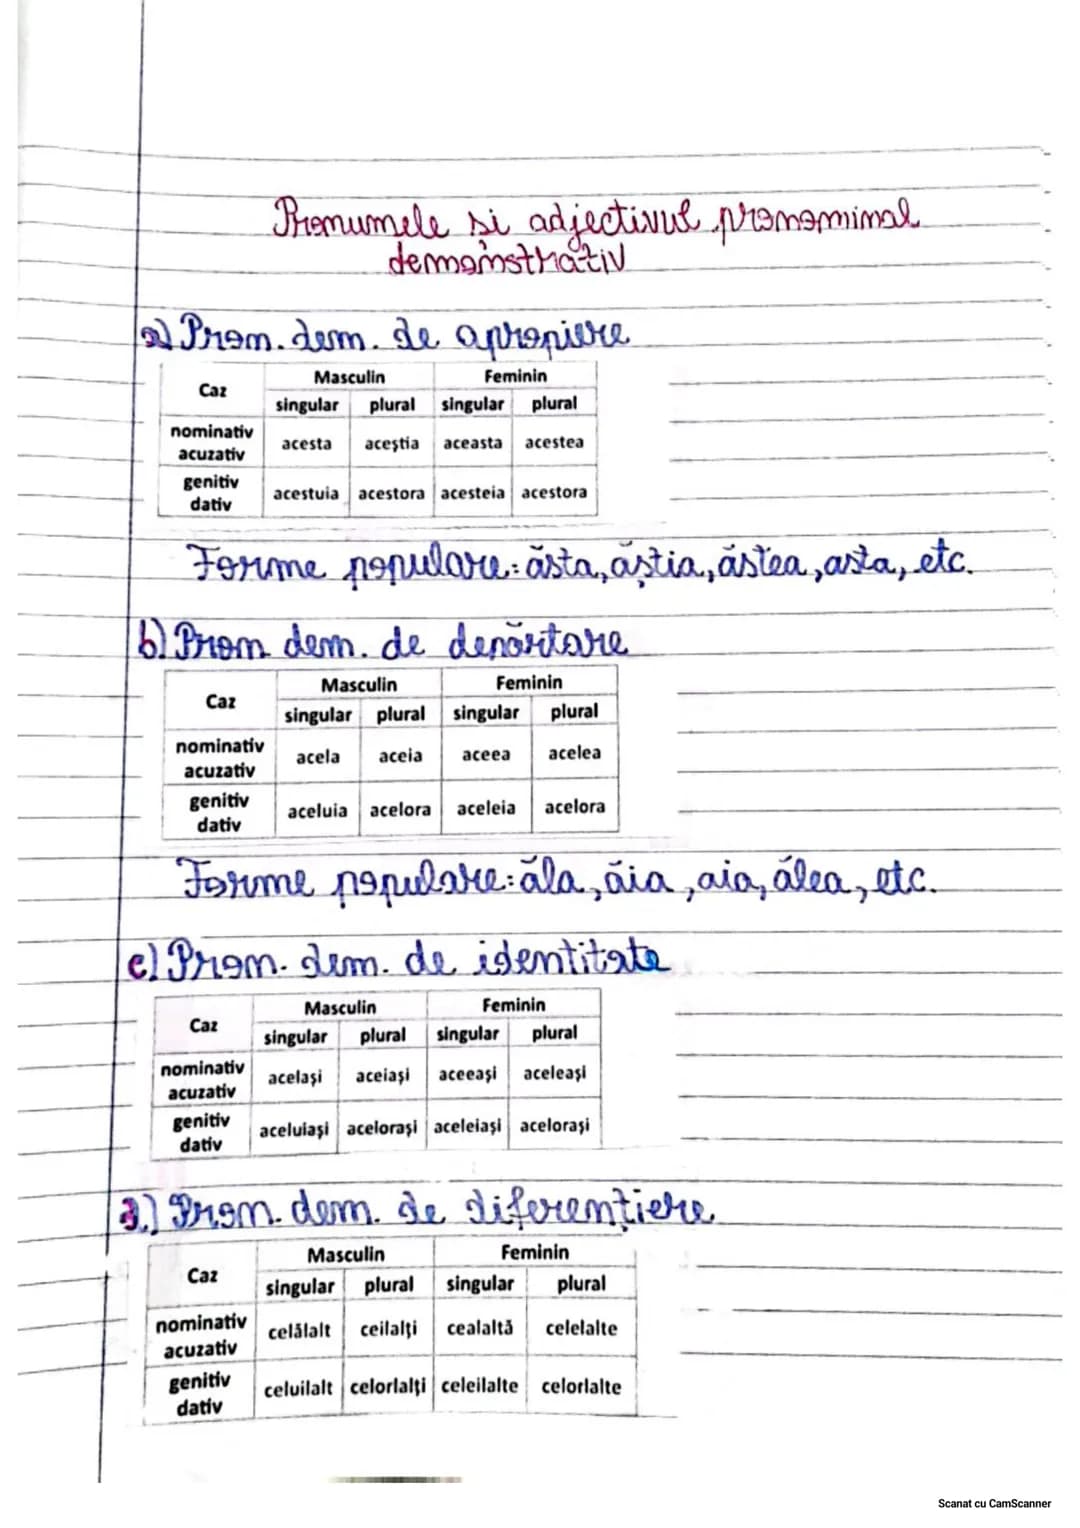 Pronumele si adjectivul pronominal
demonstrativ
a) Pron. dem. de apropiere
Caz Masculin Feminin
singular plural singular plural
nominativ acuzativ acesta aceștia aceasta acestea
genitiv dativ acestuia acestora acesteia acestora
Forme populare: ăsta, ăștia, ăstea, asta, etc.
b) Pron dem. de depărtare
Caz Masculin Feminin
singular plural singular plural
nominativ acuzativ acela aceia aceea acelea
genitiv dativ aceluia acelora aceleia acelora
Forme populare: ăla, ăia, aia, ălea, etc.
c) Pron. dem. de identitate
Caz Masculin Feminin
singular plural singular plural
nominativ acuzativ același aceiași aceeași aceleași
genitiv dativ aceluiași acelorași aceleiași acelorași
d.) Pron. dem. de diferențiere
Caz Masculin Feminin
singular plural singular plural
nominativ acuzativ celălalt ceilalți cealaltă celelalte
genitiv dativ celuilalt celorlalți celeilalte celorlalte
Scanat cu CamScanner